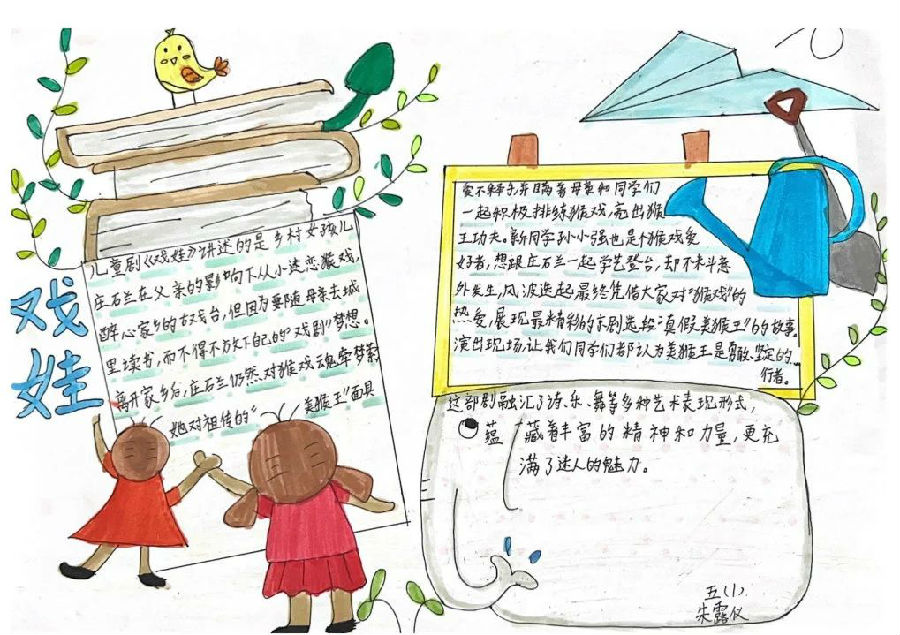 戏娃
儿童剧《戏娃》讲述的是乡村女孩儿
庄石兰在父亲的影响下从小迷恋猴戏,
醉心家乡的古戏台,但因为要随母亲去城
里读书,而不得不放下自己的“戏剧”梦想。
离开家乡后,庄石兰仍然对猴戏魂牵梦萦
她对祖传的“ 美猴王”面具
爱不释手并瞒着母亲和同学们
一起积极排练猴戏,亮出猴
王功夫。新同学孙小强也是个猴戏爱
好者,想跟庄石兰一起学艺登台,却不料意
外发生,风波迭起最终凭借大家对“猴戏”的
热爱,展现最精彩的示剧选段“真假美猴王”的故事。
演出现场,让我们同学们都认为美猴王是勇敢、坚定的
行者。
这部剧融汇了诗、乐、舞等多种艺术表现形式,
蕴藏着丰富的精神和力量,更充
满了迷人的魅力。
五(1)
朱露仪